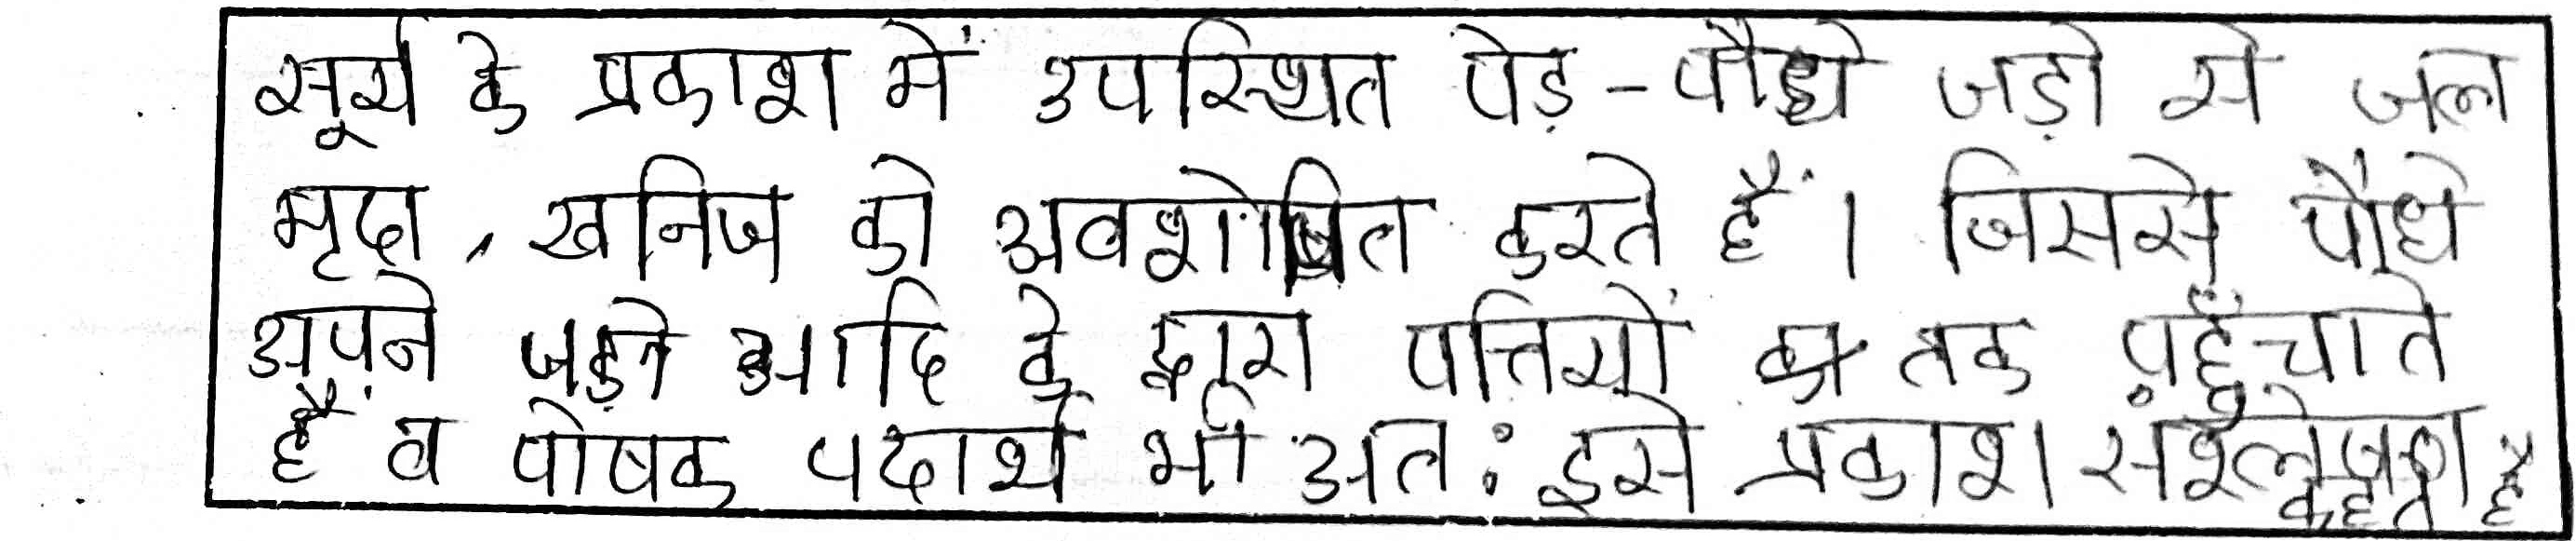 सूर्य के प्रकाश में उपस्थित पेड़ - पौधे जड़ो से जल
मृदा , खनिज को अवशोषित करते हैं । जिससे पौधे
अपने आदि के द्वारा पत्तियों तक पहुँचाते
हैं व पोषक पदार्थ भी अतः इसे प्रकाश संश्लेषण कहते है